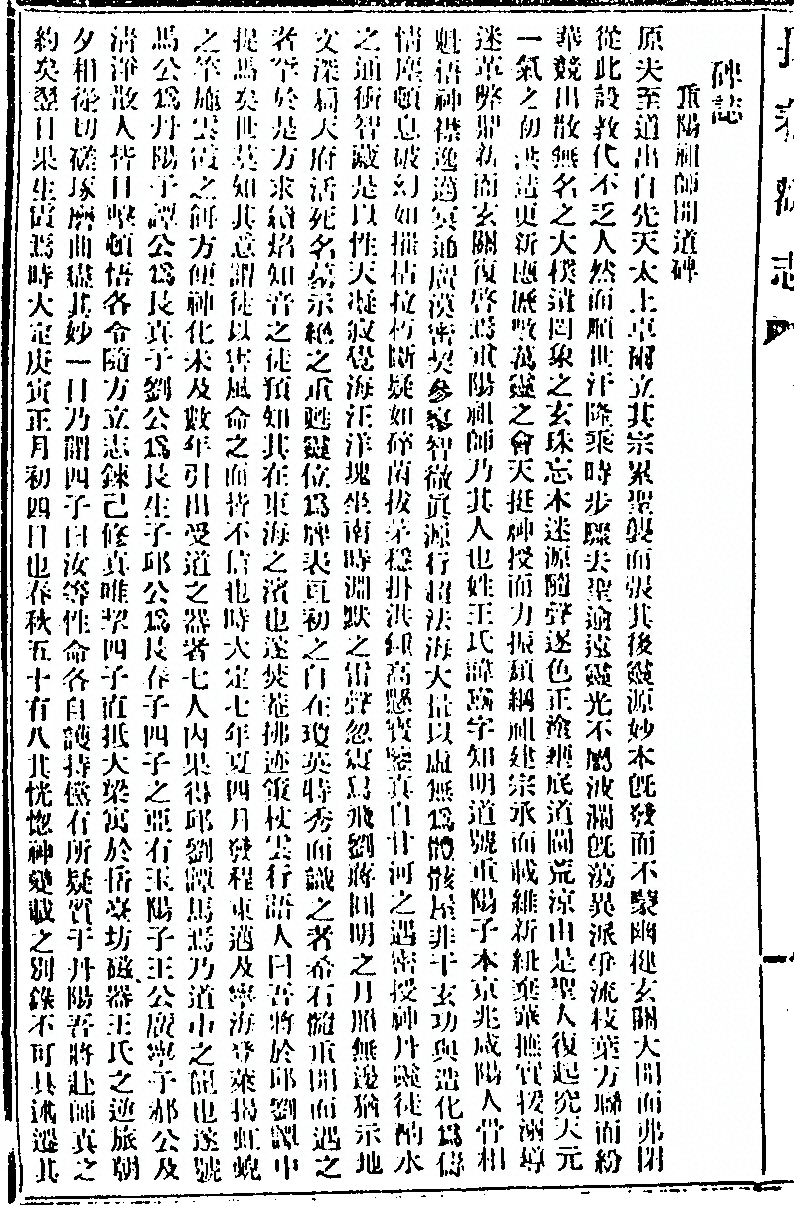 碑誌
重陽祖師開道碑
原夫至道出自先天太上卓爾立其宗累聖襲而張其後靈源妙本旣發而不蒙幽揵玄關大開而弗閉
從此設敎代不乏人然而順世汙隆乘時步驟去聖逾遠靈光不屬波瀾旣蕩異派爭流枝葉方聯而紛
華競出散無名之大樸遺罔象之玄珠忘本迷源隨聲逐色正途壅底道闢荒凉由是聖人復起究天元
一氣之初洪造更新應歷數萬靈之會天挺神授而力振頹綱祖建宗承而載維新紐棄華摭實拔溺導
迷革弊鼎新而玄關復啓焉重陽祖師乃其人也姓王氏諱嚞字知明道號重陽子本京兆咸陽人骨相
魁梧神襟逸邁冥通廣漠密契參寥智徹眞源行超法海大情以虛無爲體骸屋非干玄功與造化爲儔
情塵頓息破幻如摧枯拉朽斷疑如碎菌拔茅穩掛洪紐高懸寶鑒眞自甘河之遇密授神丹靈徒酌水
之通衢智藏是以性天凝寂覺海汪洋塊坐南時淵默之雷聲忽震烏飛劉蔣圓明之月照無邊猶示地
文深扃天府活死名墓示絕之重甦靈位爲牌表眞初之自在瓊英時秀而識之者希石髓重開而遇之
者罕於是方求續焰知音之徒預知其在東海之濱也遂焚菴拂迹策杖雲行語人曰吾將於邱劉譚中
捉馬矣世莫知其意謂徒以害風命之而皆不信也時大定七年夏四月發程東邁及寧海登萊揭虹蜺
之竿施雲霞之餌方便神化未及數年引出受道之器者七人內果得邱劉譚馬焉乃道中之龍也遂號
馬公爲丹陽子譚公爲長眞子劉公爲長生子邱公爲長春子四子之亞有玉陽子王公廣寧子郝公及
淸淨散人皆目擊頓悟各令隨方立志鍊己修眞唯挈四子直抵大梁寓於岳臺坊磁器王氏之逆旅朝
夕相從切磋琢磨曲盡其妙一日乃謂四子曰汝等性命各自護持儻有所疑質于丹陽吾將赴師眞之
約矣翌日果坐蛻焉時大定庚寅正月初四日也春秋五十有八其恍惚神變載之別錄不可具述遷其